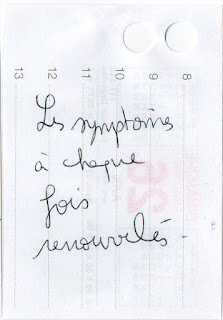 13 12 11 10 9 8
Les symptômes
à chaque
fois
renouvelés -